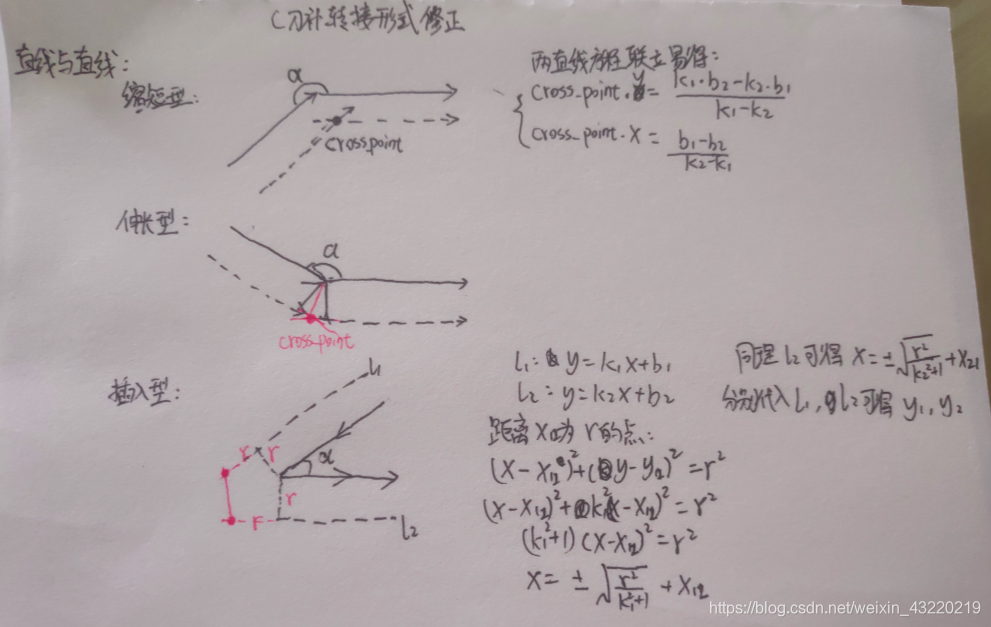 C刀补转接形式修正
直线与直线:
缩短型:
α
crosspoint
两直线方程联立易得:
cross-point.y = (k1·b2-k2·b1)/(k1-k2)
cross-point.x = (b1-b2)/(k2-k1)
伸长型:
α
cross-point
插入型:
l1
r
r
α
r
r
l2
l1: y=k1x+b1
l2: y=k2x+b2
距离X12为r的点:
(x-x12)²+(y-y12)²=r²
(x-x12)²+k1²(x-x12)²=r²
(k1²+1)(x-x12)²=r²
x=±√(r²/(k1²+1))+x12
同理l2可得 x=±√(r²/(k2²+1))+x21
分别代入l1,l2可得y1,y2
https://blog.csdn.net/weixin_43220219